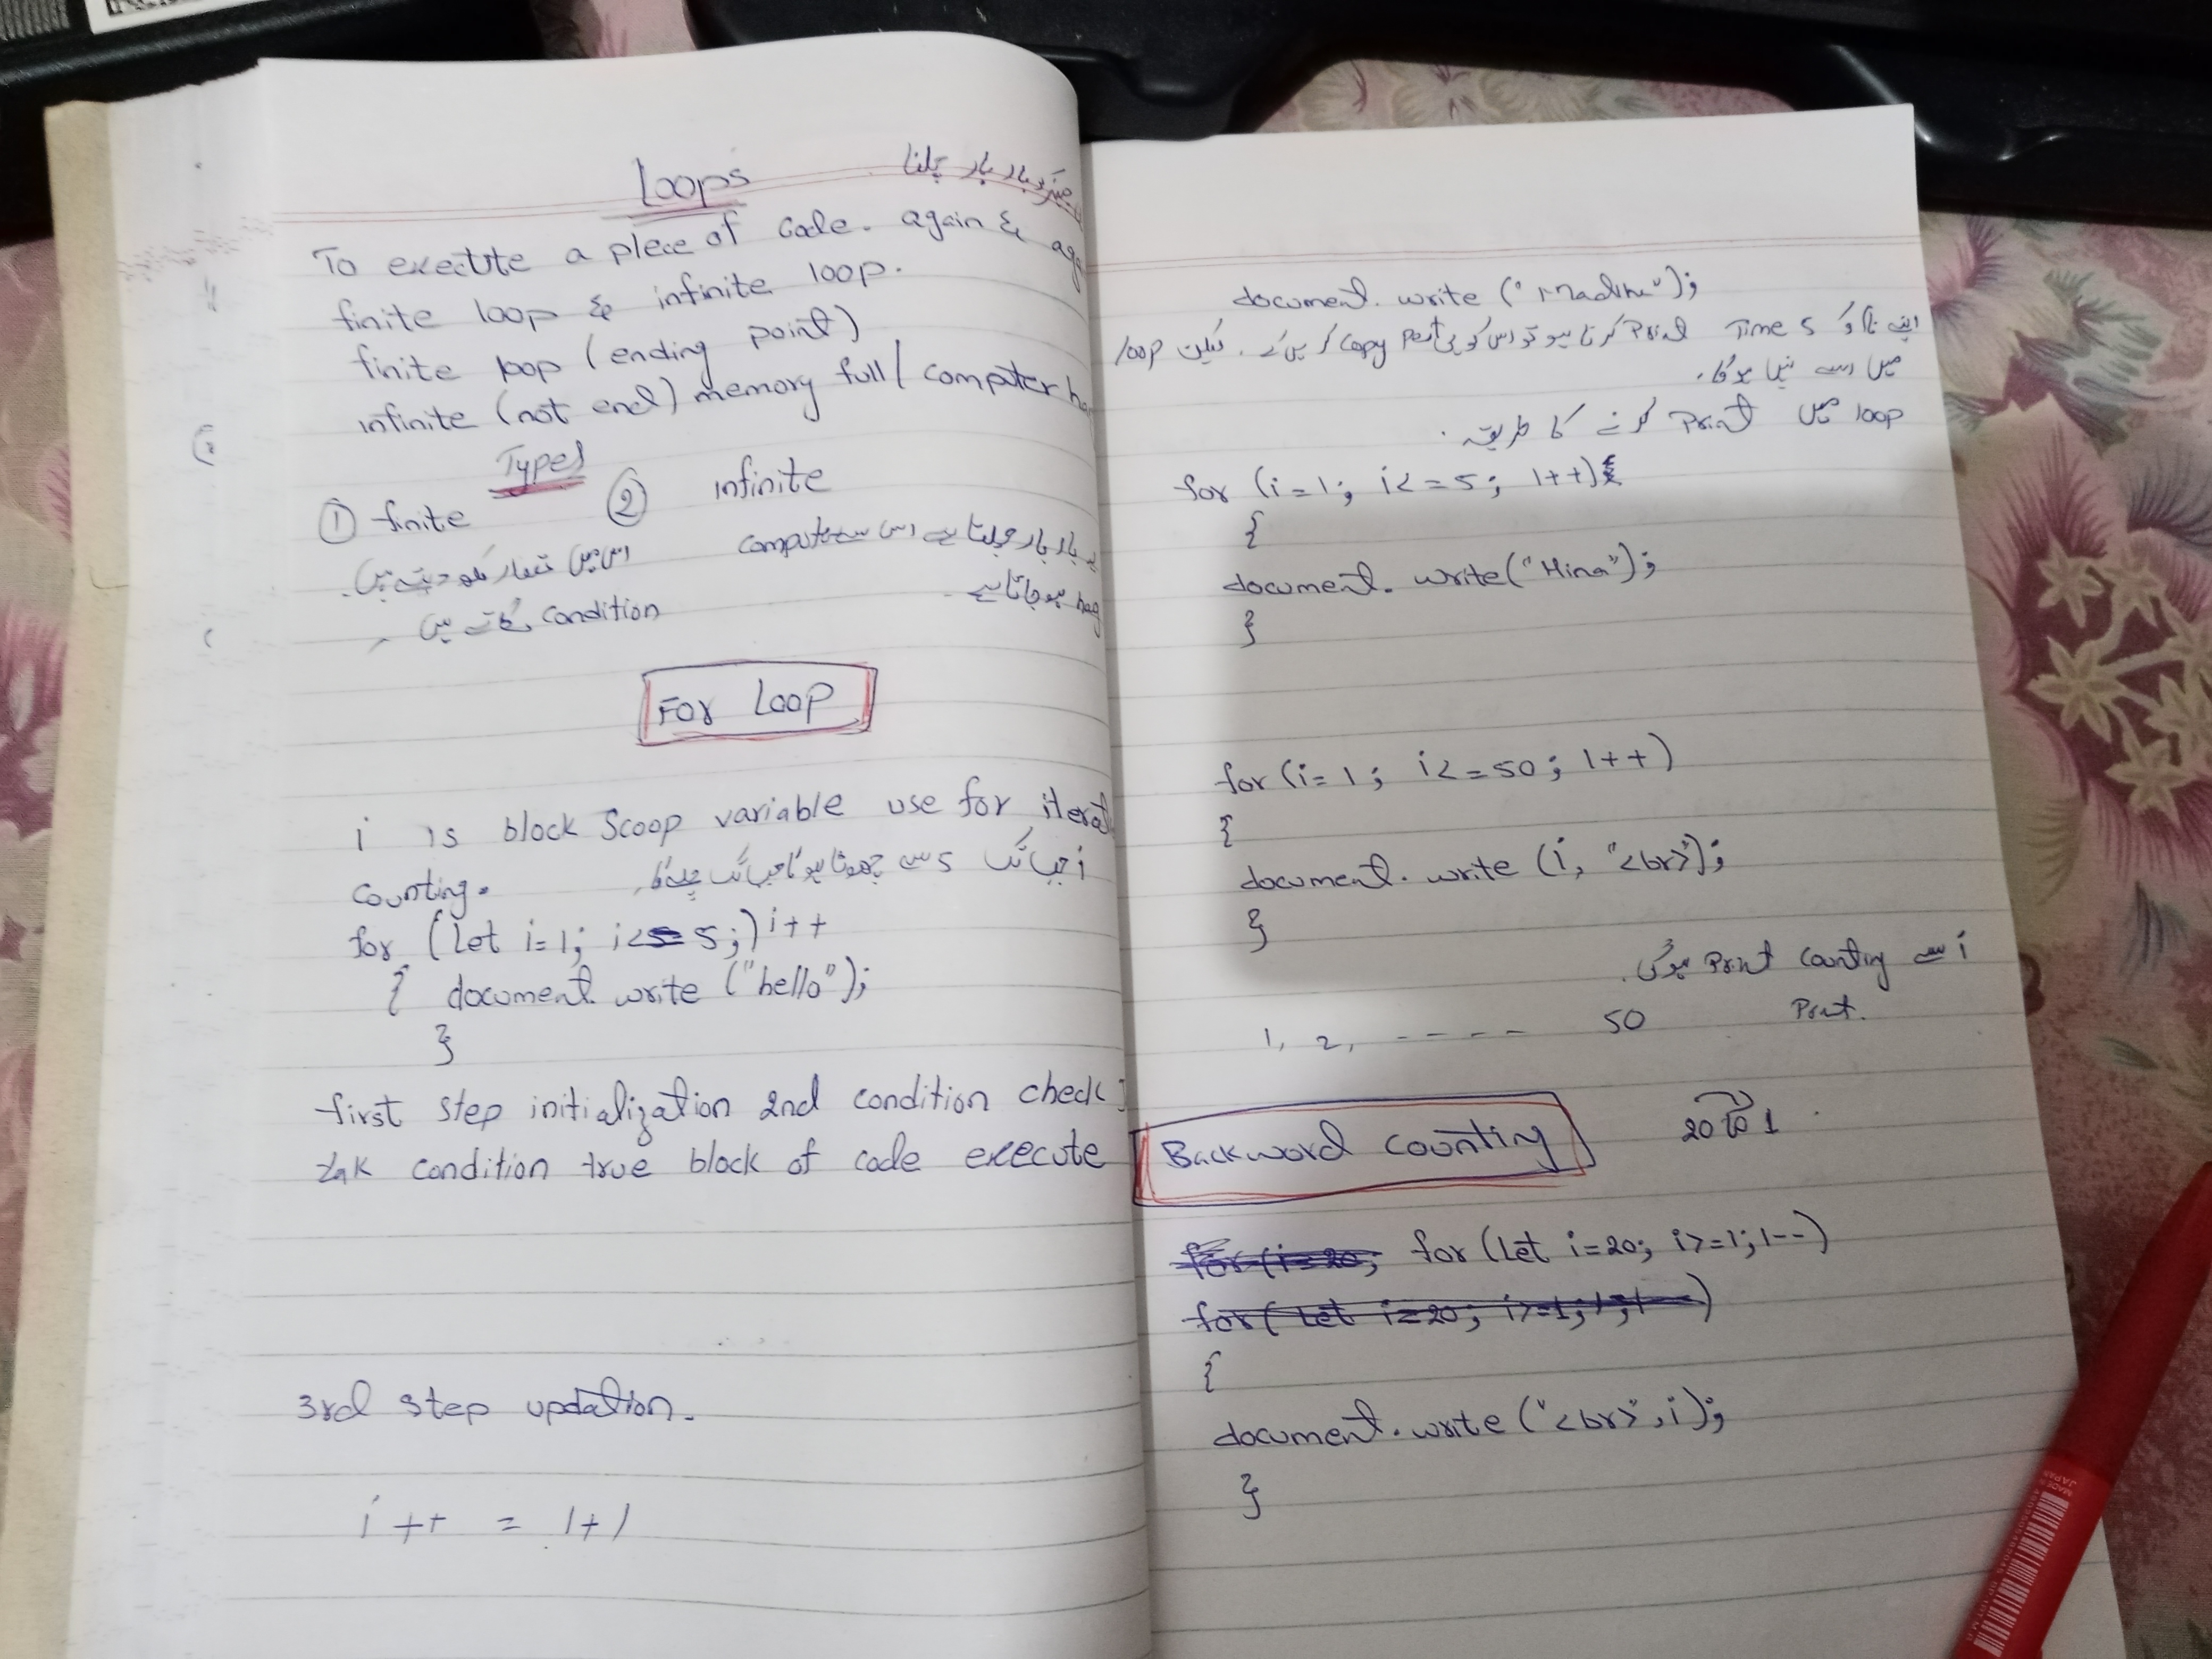 Loops
بار بار چلنا
To exectute a piece of code. again &
finite loop & infinite loop.
finite loop (ending point)
infinite (not end) memory full / computer
Types
① finite ② infinite
اس میں تعداد لکھ دیتے ہیں.
condition لگاتے ہیں
بار بار چلتا ہے اس سے computer
hag ہو جاتا ہے.
For Loop
i is block Scoop variable use for
counting. i جب تک 5 سے چھوٹا ہو گا جب تک چلے گا.
for (Let i=1; i<=5;) i++
{ document. write ("hello");
}
first step initialization 2nd condition check
condition true block of code execute
3rd step updation.
i ++ = 1+1
document. write ("");
اپنے نام کو 5 Time Print کرنا ہو تو اس کو copy کریں گے. لیکن loop
میں اسے نہیں ہو گا.
loop میں Print کرنے کا طریقہ.
for (i=1; i<=5; 1++)
{
document. write("Hina");
}
for (i=1; i<=50; 1++)
{
document. write (i, "<br>");
}
i سے Counting Print ہو گی.
1, 2, ----- 50 Print.
Backword counting 20 to 1
for (Let i=20; i>=1; 1--)
{
document. write ("<br>", i);
}
MADE IN JAPAN